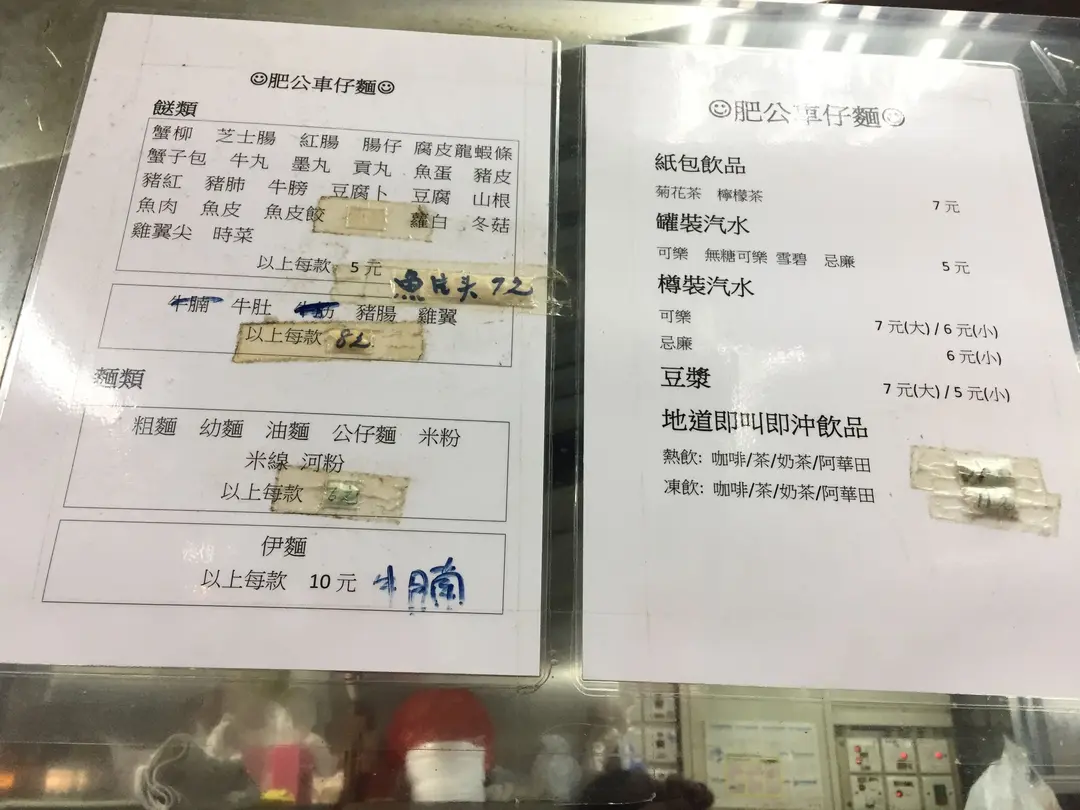 ☺肥公車仔麵☺
餸類
蟹柳 芝士腸 紅腸 腸仔 腐皮龍蝦條
蟹子包 牛丸 墨丸 貢丸 魚蛋 豬皮
豬紅 豬肺 牛膀 豆腐卜 豆腐 山根
魚肉 魚皮 魚皮餃 蘿白 冬菇
雞翼尖 時菜
以上每款 5 元
魚片头 7元
牛腩 牛肚 豬腸 雞翼
以上每款 8元
麵類
粗麵 幼麵 油麵 公仔麵 米粉
米線 河粉
以上每款
伊麵
以上每款 10 元 牛腩
☺肥公車仔麵☺
紙包飲品
菊花茶 檸檬茶 7 元
罐裝汽水
可樂 無糖可樂 雪碧 忌廉 5 元
樽裝汽水
可樂 7 元(大) / 6 元(小)
忌廉 6 元(小)
豆漿 7 元(大) / 5 元(小)
地道即叫即沖飲品
熱飲: 咖啡/茶/奶茶/阿華田
凍飲: 咖啡/茶/奶茶/阿華田